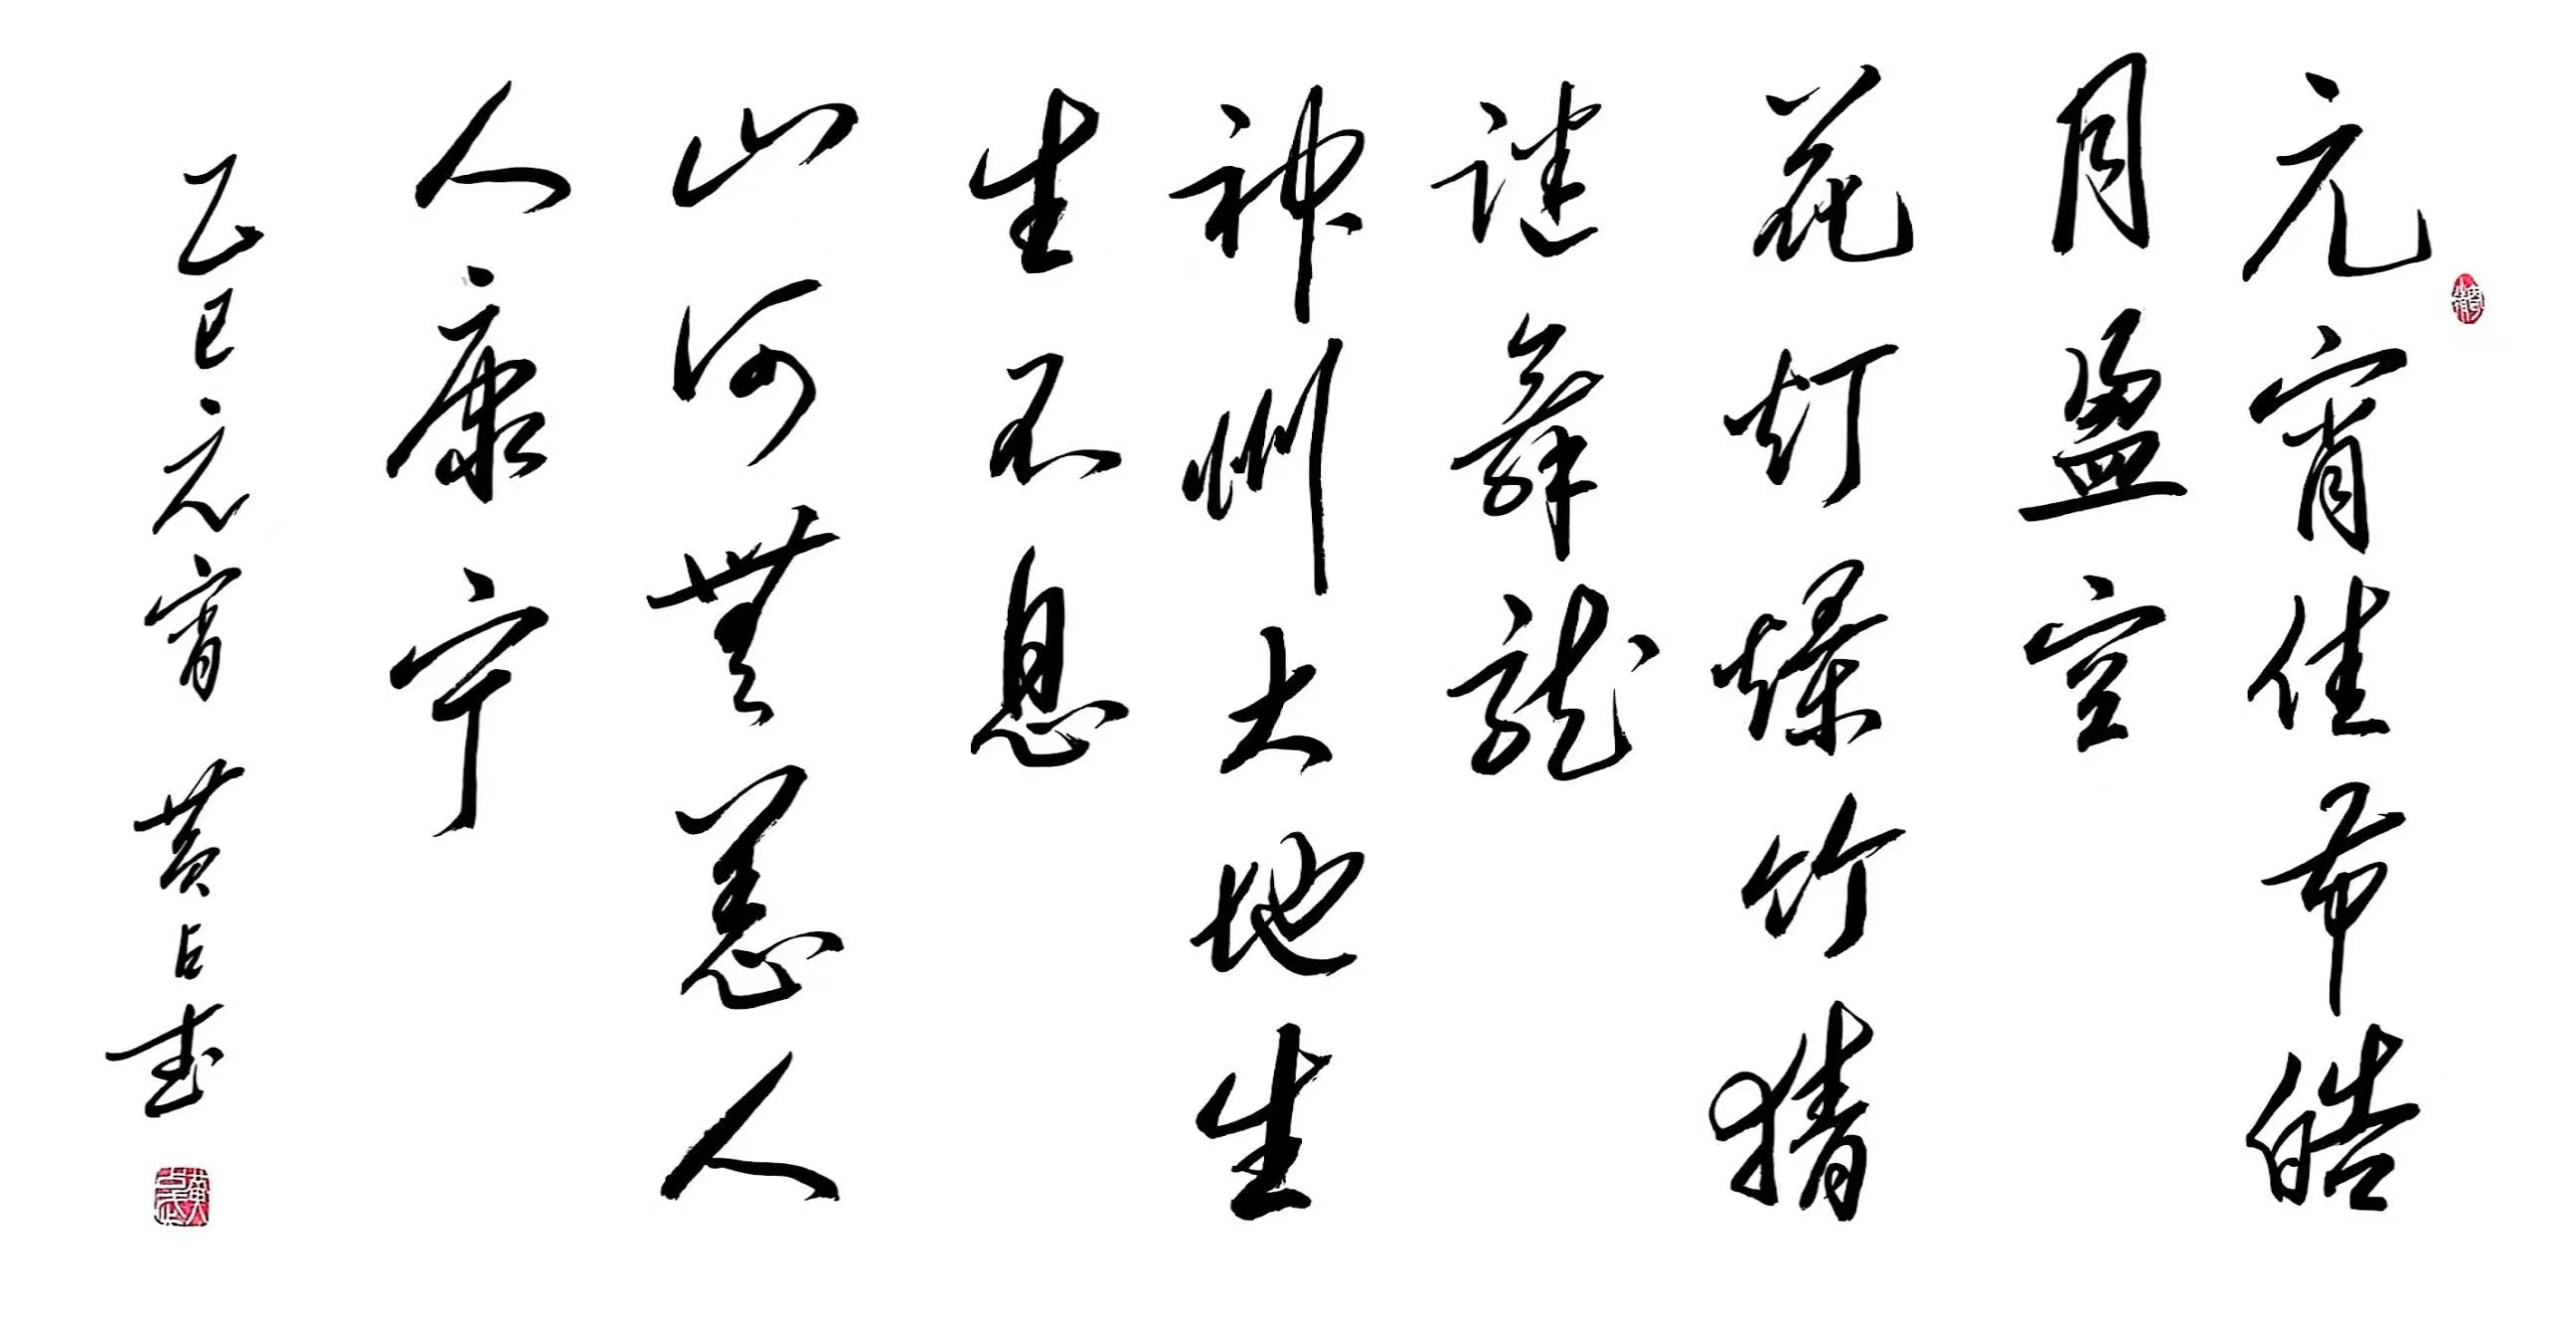 元宵佳节皓
月盈空
花灯爆竹猜
谜舞龙
神州大地生
生不息
山河無恙人
人康宁
乙巳元宵 黄占武